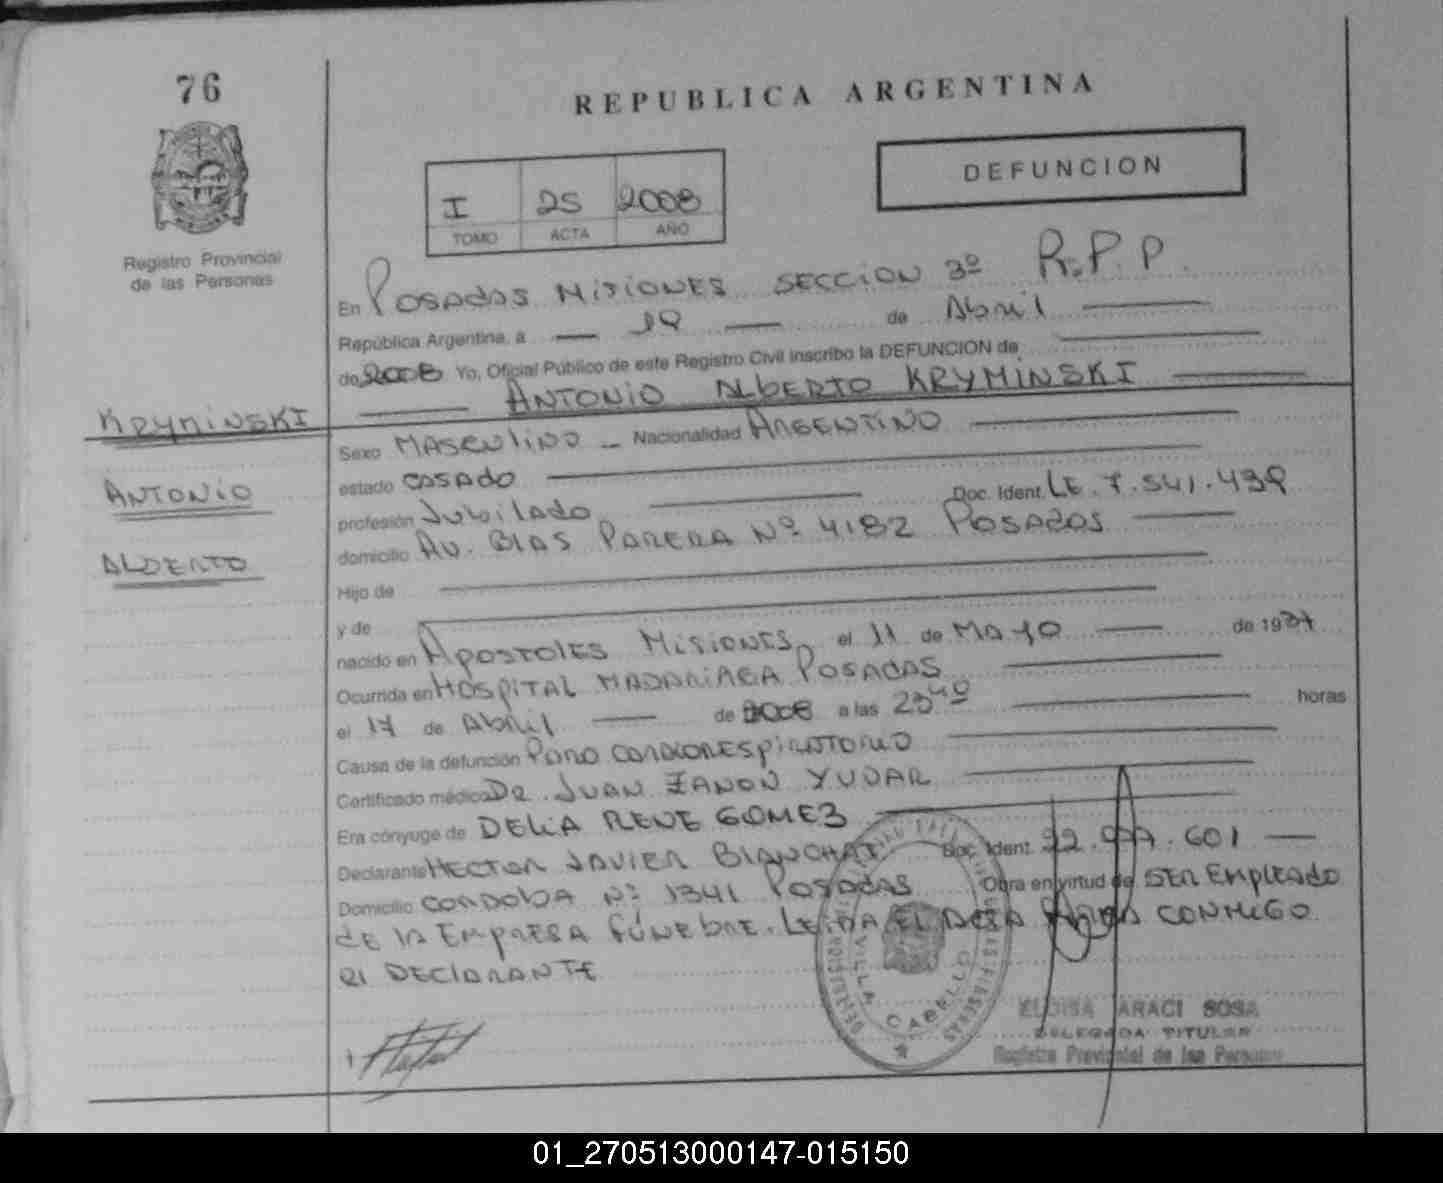 76
REPUBLICA ARGENTINA
DEFUNCION
I 25 2008
TOMO ACTA AÑO
Registro Provincial
de las Personas
En Posadas Misiones SECCION 3º R.P.P.
República Argentina, a 19 de Abril
de 2008 Yo, Oficial Público de este Registro Civil inscribo la DEFUNCION de
ANTONIO ALBERTO KRYMINSKI
KRYMINSKI
ANTONIO
ALBERTO
Sexo MASCULINO Nacionalidad ARGENTINO
estado CASADO
profesión Jubilado Doc. Ident. LE. 7.541.439
domicilio AV. BLAS PARERA Nº 4182 POSADAS
Hijo de
y de
nacido en Apostoles Misiones el 11 de MAYO de 1937
Ocurrida en HOSPITAL MADARIAGA POSADAS
el 17 de Abril de 2008 a las 23 40 horas
Causa de la defunción Paro cardiorespiratorio
Certificado médico DR. JUAN ZANON YUDAR
Era cónyuge de DELIA RENE GOMEZ
Declarante HECTOR JAVIER Doc. Ident. 601
Domicilio CORDOBA Nº 1341 POSADAS Obra en virtud de SER EMPLEADO
DE LA EMPRESA FÚNEBRE. LEIDA EL ACTA FIRMA CONMIGO
EL DECLARANTE
VILLA CABELLO
ELOISA ARACI SOSA
DELEGADA TITULAR
Registro Provincial de las Personas
01_270513000147-015150